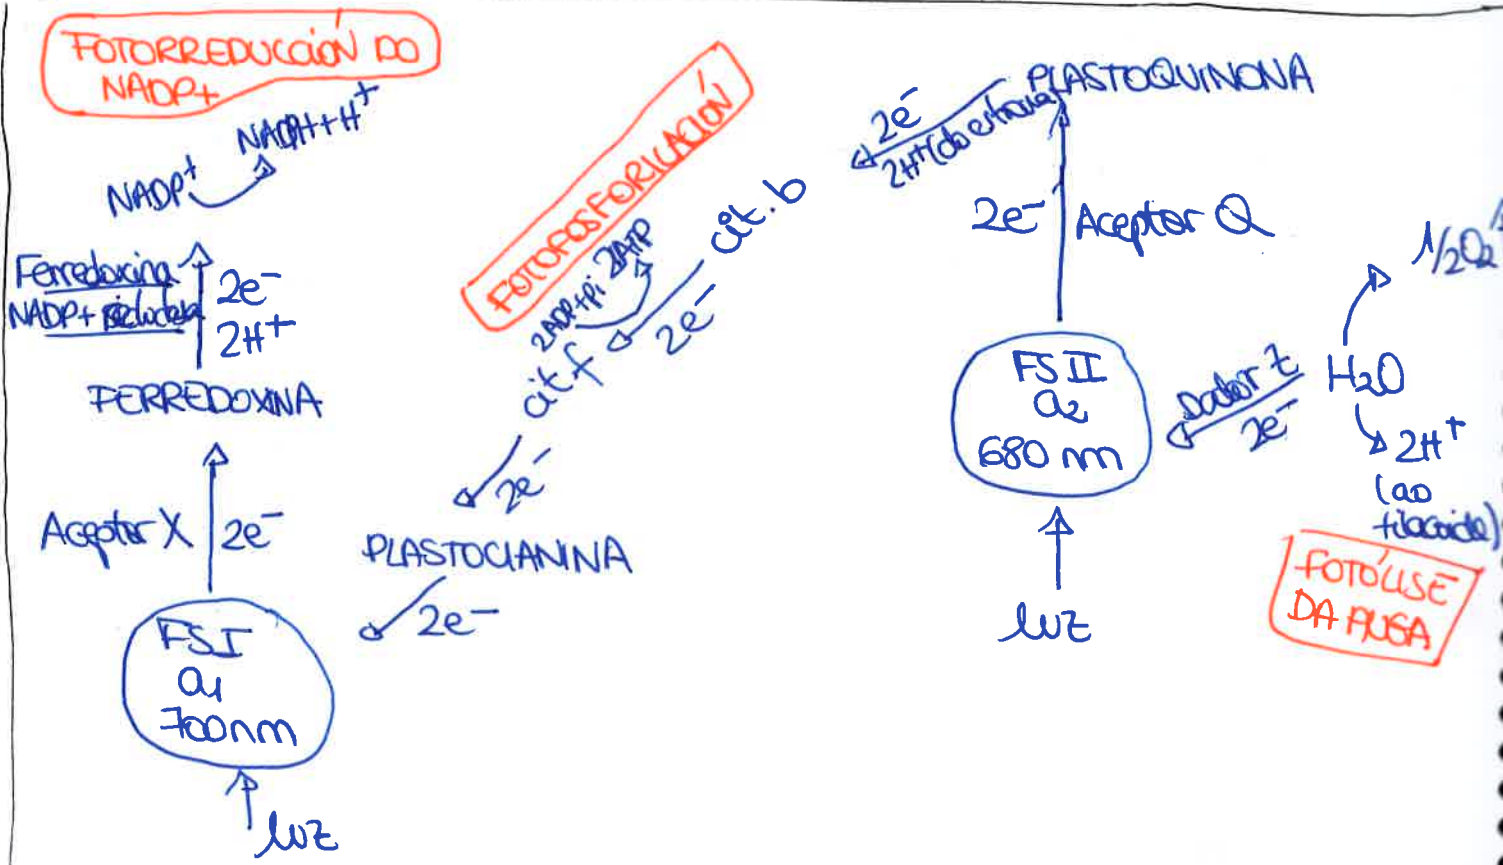 FOTORREDUCCIÓN DO
NADP+
NADP+
NADPH++H+
Ferredoxina
NADP+
2e-
2H+
FERREDOXINA
Aceptor X
2e-
FSI
a1
700nm
luz
FOTOFOSFORILACIÓN
2ADP+Pi
2ATP
cit. b
2e-
cit. f
2e-
PLASTOCIANINA
2e-
PLASTOQUINONA
2e-
2H+ (do estroma)
2e-
Aceptor Q
FS II
a2
680 nm
luz
Dador Z
2e-
1/2O2
H2O
2H+
(ao
tilacoide)
FOTÓLISE
DA AUGA